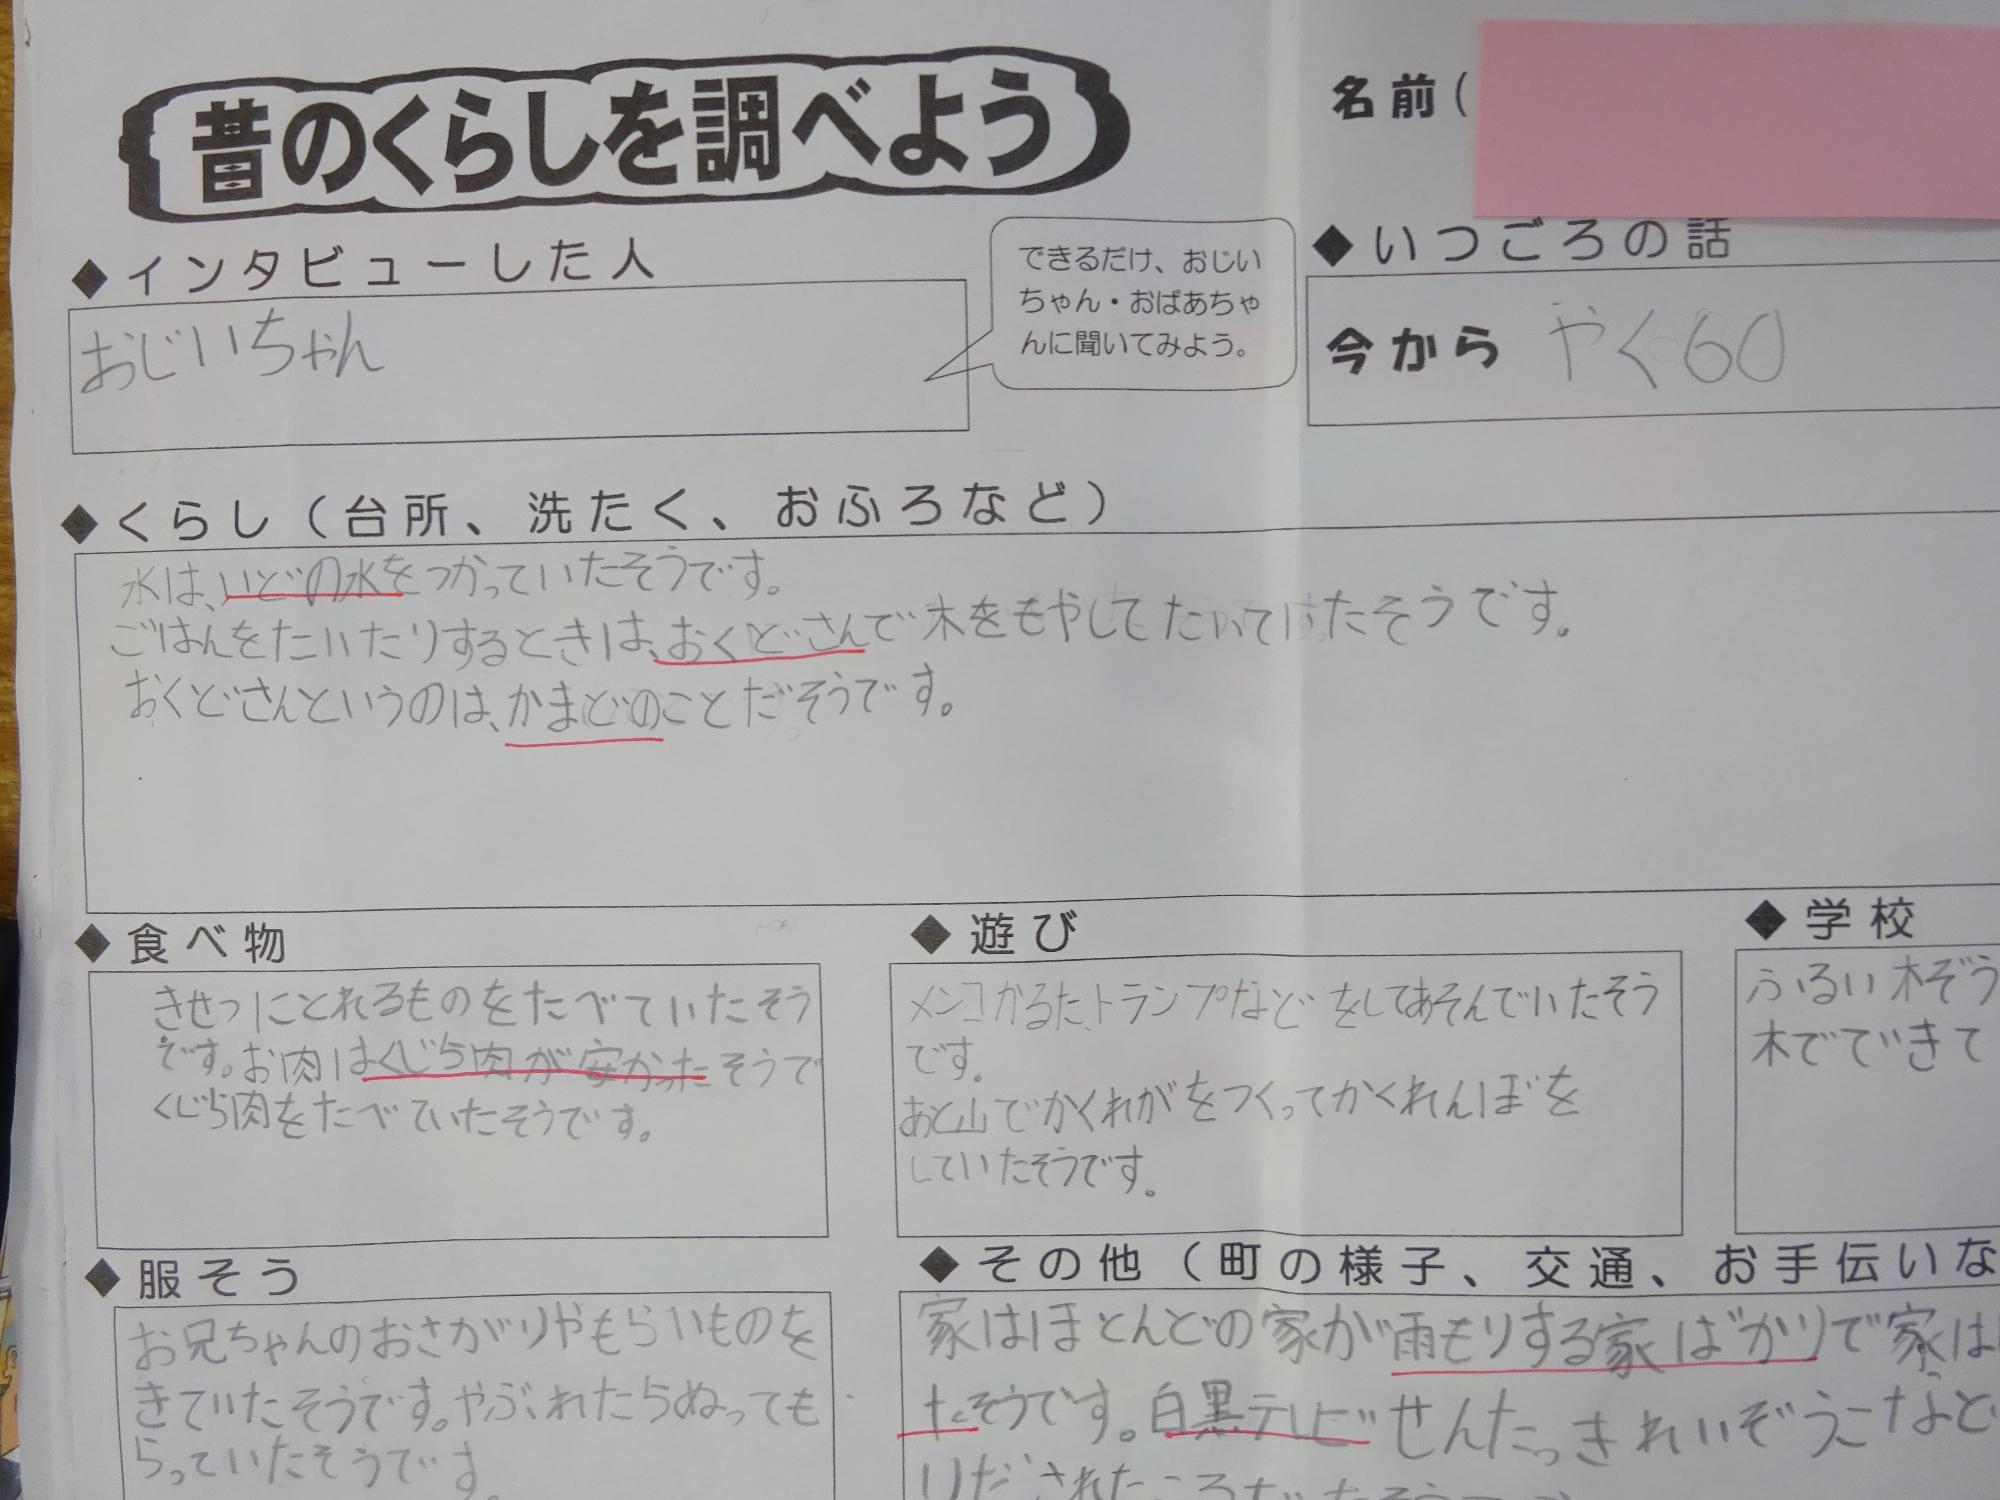 昔のくらしを調べよう
名前(
◆インタビューした人
おじいちゃん
できるだけ、おじい
ちゃん・おばあちゃ
んに聞いてみよう。
◆いつごろの話
今から やく60
◆くらし(台所、洗たく、おふろなど)
水は、いどの水をつかっていたそうです。
ごはんをたいたりするときは、おくどさんで木をもやしてたいていたそうです。
おくどさんというのは、かまどのことだそうです。
◆食べ物
きせつにとれるものをたべていたそう
です。お肉はくじら肉が安かったそうで
くじら肉をたべていたそうです。
◆遊び
メンコかるた、トランプなどをしてあそんでいたそう
です。
あと山でかくれがをつくってかくれんぼを
していたそうです。
◆学校
ふるい木ぞう
木でできて
◆服そう
お兄ちゃんのおさがりやもらいものを
きていたそうです。やぶれたらぬっても
らっていたそうです。
◆その他(町の様子、交通、お手伝いな
家はほとんどの家が雨もりする家ばかりで家は
たそうです。白黒テレビせんたっきれいぞうこなど
りだされたころだったそうです